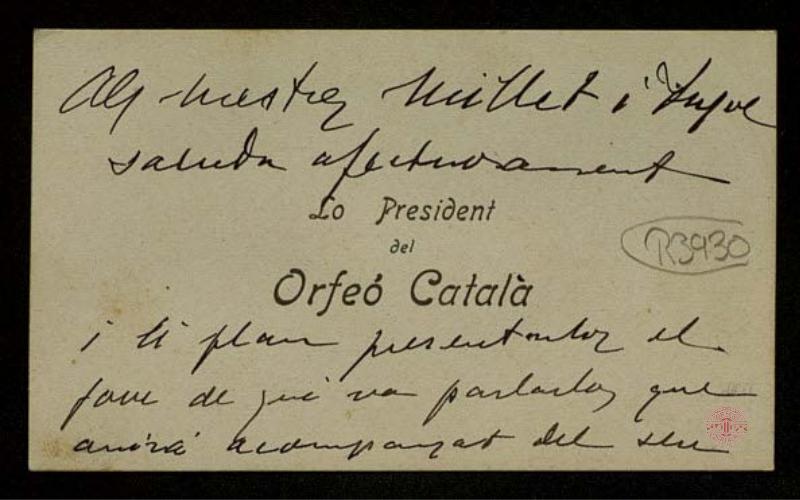 Als mestres Millet i Pujol
saluda afectuosament
Lo President
del
Orfeó Català
R3930
i li plau presentarlos el
jove de qui va parlarlos que
anirà acompanyat del seu